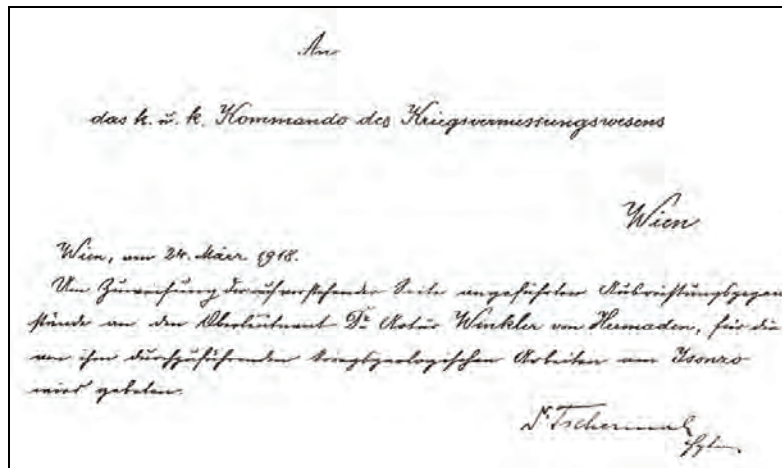 An
das k. u. k. Kommando des Kriegsvermessungswesens
Wien
Wien, am 24. März 1918.
Um Zuweisung der umstehender Seite angeführten Ausrüstungsgegen
stände an den Oberleutnant Dr. Artur Winkler von Hermaden, für die
von ihm durchzuführenden kriegsgeologischen Arbeiten am Isonzo
wird gebeten.
Dr. Tschermak